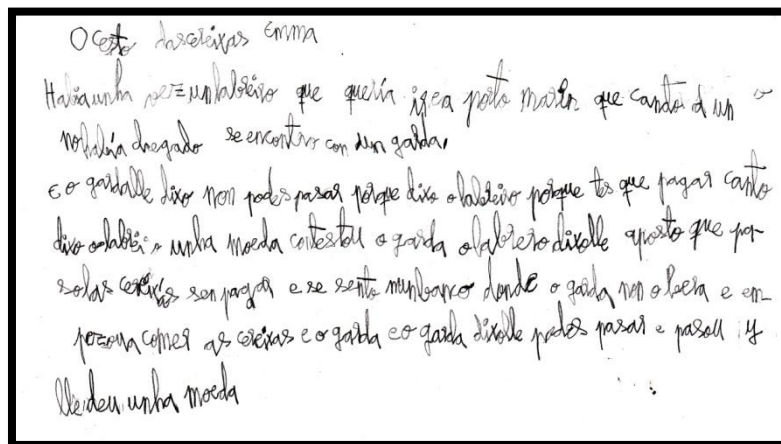 O cesto dascereixas Emma
Habiaunha vez unlabreiro que quería ir a porto Marín que cando d un
nohabía chegado seencontro con dun garda,
E o gardalle dixo non podes pasar porque dixo olabreiro porque tes que pagar canto
dixo olabrei o unha moeda contestou o garda olabrero dixolle aposto que pa-
solas cereixas sen pagar e se sento nunbanco donde o garda non o biera e em
pezoua comer as cereixas e o garda e o garda dixolle podes pasar e pasou y
lle deu unha moeda